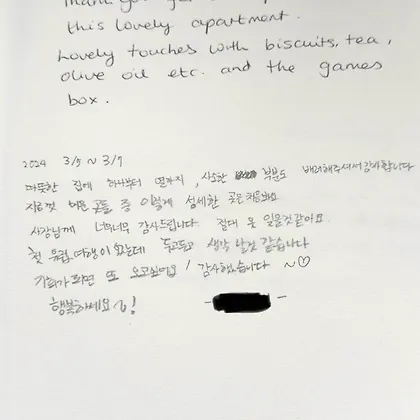 this lovely apartment.
Lovely touches with biscuits, tea,
olive oil etc. and the games
box.
2024 3/5 ~ 3/7
따뜻한 집에 하나부터 열까지, 사소한 부분도 배려해주셔서 감사합니다
지금껏 곳들 중 이렇게 섬세한 곳은 처음봐요
사장님께 너무너무 감사드립니다. 절대 못 잊을것같아요.
첫 유럽 여행이었는데 두고두고 생각 날것 같습니다
기회가 되면 또 오고싶어요! 감사했습니다 ~♡
행복하세요!